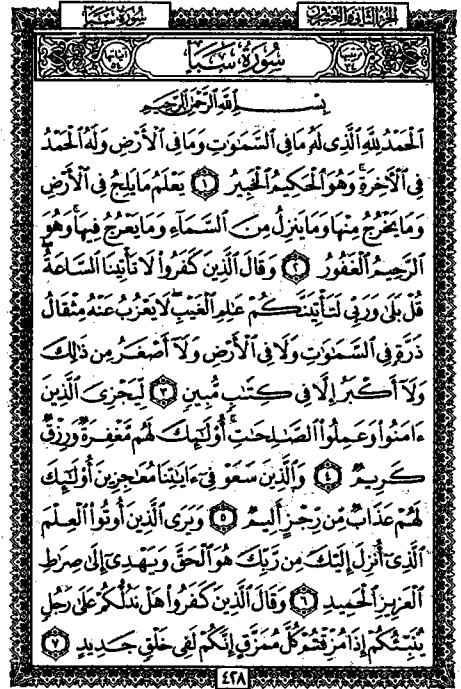 سُورَةُ سَبَإٍ
الجُزْءُ الثَّانِي وَالعِشْرُونَ
سُورَةُ سَبَإٍ
بِسْمِ اللَّهِ الرَّحْمَٰنِ الرَّحِيمِ
الْحَمْدُ لِلَّهِ الَّذِي لَهُ مَا فِي السَّمَٰوَٰتِ وَمَا فِي الْأَرْضِ وَلَهُ الْحَمْدُ
فِي الْآخِرَةِ ۚ وَهُوَ الْحَكِيمُ الْخَبِيرُ ١ يَعْلَمُ مَا يَلِجُ فِي الْأَرْضِ
وَمَا يَخْرُجُ مِنْهَا وَمَا يَنزِلُ مِنَ السَّمَآءِ وَمَا يَعْرُجُ فِيهَا ۚ وَهُوَ
الرَّحِيمُ الْغَفُورُ ٢ وَقَالَ الَّذِينَ كَفَرُوا لَا تَأْتِينَا السَّاعَةُ ۖ
قُلْ بَلَىٰ وَرَبِّي لَتَأْتِيَنَّكُمْ عَٰلِمِ الْغَيْبِ ۖ لَا يَعْزُبُ عَنْهُ مِثْقَالُ
ذَرَّةٍ فِي السَّمَٰوَٰتِ وَلَا فِي الْأَرْضِ وَلَآ أَصْغَرُ مِن ذَٰلِكَ
وَلَآ أَكْبَرُ إِلَّا فِي كِتَٰبٍ مُّبِينٍ ٣ لِّيَجْزِيَ الَّذِينَ
ءَامَنُوا وَعَمِلُوا الصَّٰلِحَٰتِ ۚ أُولَٰٓئِكَ لَهُم مَّغْفِرَةٌ وَرِزْقٌ
كَرِيمٌ ٤ وَالَّذِينَ سَعَوْ فِيٓ ءَايَٰتِنَا مُعَٰجِزِينَ أُولَٰٓئِكَ
لَهُمْ عَذَابٌ مِّن رِّجْزٍ أَلِيمٌ ٥ وَيَرَى الَّذِينَ أُوتُوا الْعِلْمَ
الَّذِيٓ أُنزِلَ إِلَيْكَ مِن رَّبِّكَ هُوَ الْحَقَّ وَيَهْدِيٓ إِلَىٰ صِرَٰطِ
الْعَزِيزِ الْحَمِيدِ ٦ وَقَالَ الَّذِينَ كَفَرُوا هَلْ نَدُلُّكُمْ عَلَىٰ رَجُلٍ
يُنَبِّئُكُمْ إِذَا مُزِّقْتُمْ كُلَّ مُمَزَّقٍ إِنَّكُمْ لَفِي خَلْقٍ جَدِيدٍ ٧
٤٢٨